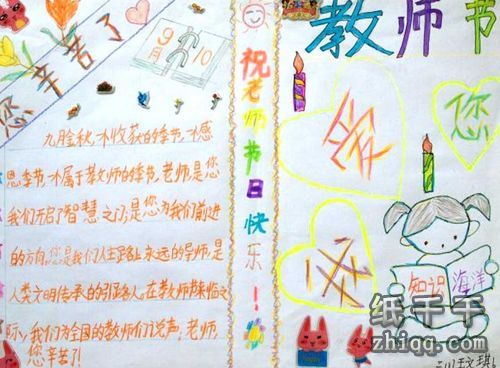 您辛苦了
9月10
九月金秋,一个收获的季节,一个感
恩季节,一个属于教师的季节,老师,是您
我们开启了智慧之门;是您为我们前进
的方向,您是我们人生路上永远的导师,是
人类文明传承的引路人,在教师节来临之
际,我们为全国的教师们说声,老师,
您辛苦了!
祝老师节日快乐!
教师节
爱
您
知识 海洋
纸千千
zhiqq.com